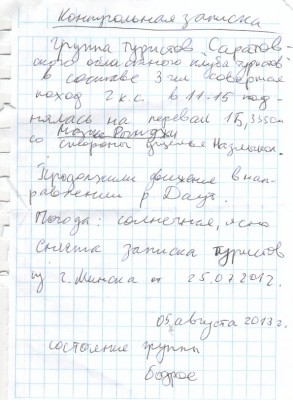 Контрольная записка
Группа туристов Саратов-
ского областного клуба туристов
в составе 3 чел. совершая
поход 2 к.с. в 11-15 под-
нялась на перевал 1Б, 3350м
со стороны ущелья
Продолжили движение в нап-
равлении р.
Погода: солнечная, ясно
Снята записка туристов
из г. Минска от 25.07.2012.
05 августа 2013г.
состояние группы
бодрое